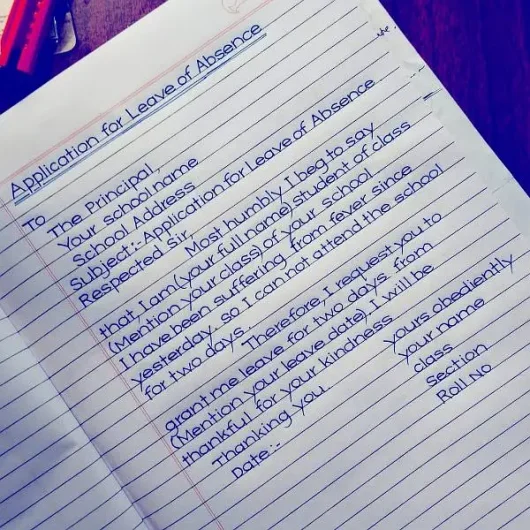 Application for Leave of Absence
To
The Principal,
Your school name
School Address
Subject:-Application for Leave of Absence
Respected Sir,
Most humbly I beg to say
that, I am (your full name) student of class
(Mention your class) of your school
I have been suffering from fever since
yesterday. so I can not attend the school
for two days.
Therefore, I request you to
grant me leave for two days from
(Mention your leave date). I will be
thankful for your kindness
Thanking you.
Date:-
yours obediently
your name
class
section
Roll No